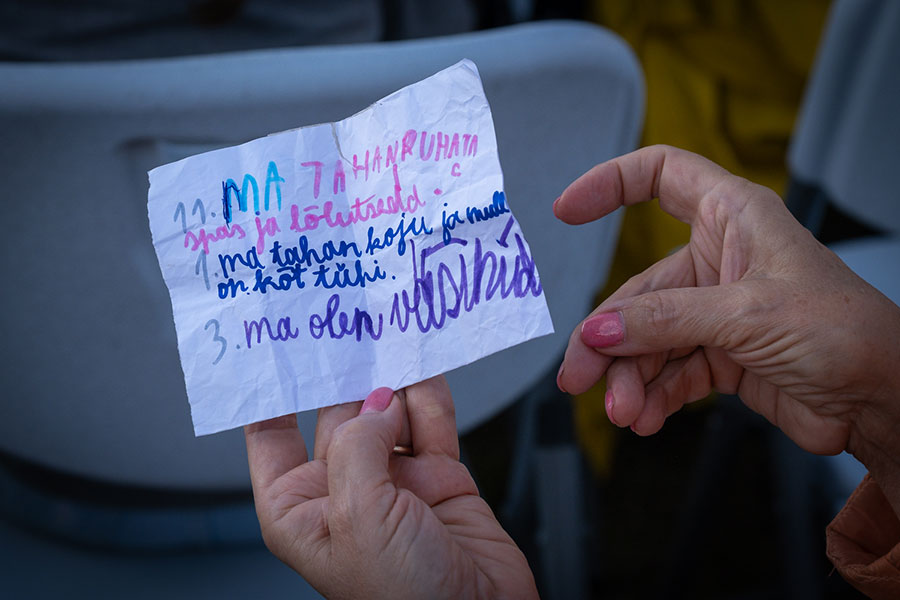 11. MA TAHAN RUHATA
spas ja lõõutsedd.
1. ma tahan koju ja mull
on. kõt tühi.
3. ma olen väsinud